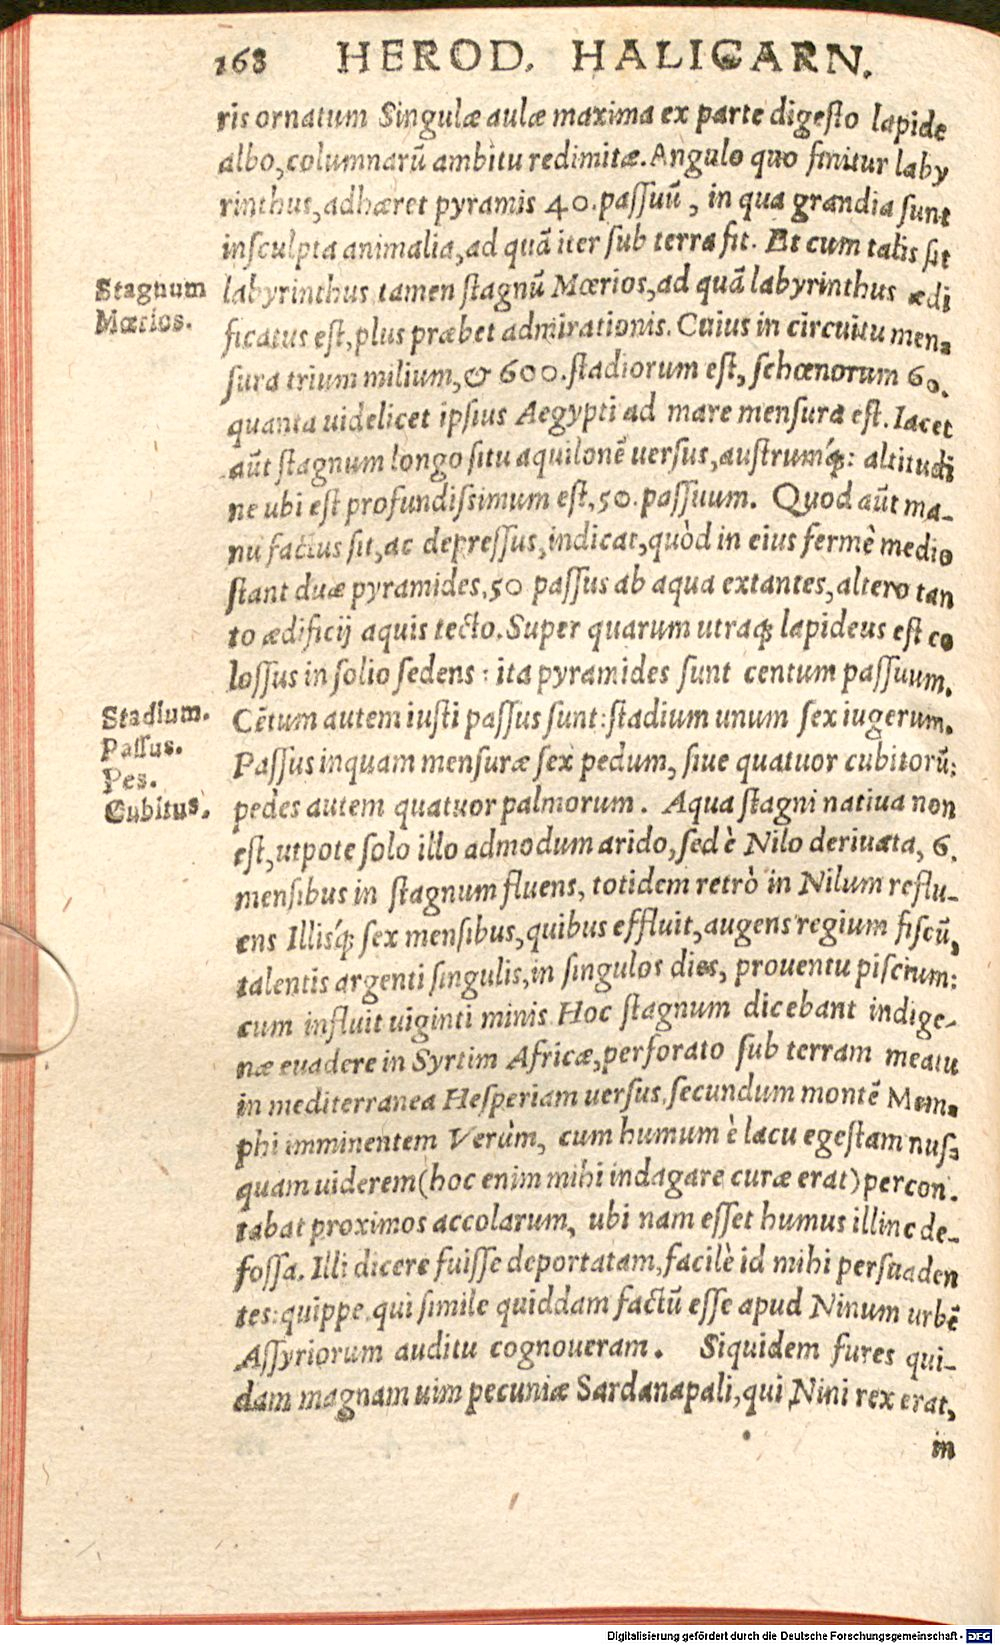 168 HEROD. HALICARN.
ris ornatum Singulæ aulæ maxima ex parte digesto lapide
albo, columnarū ambitu redimitæ. Angulo quo finitur laby
rinthus, adhæret pyramis 40. passuū, in qua grandia sunt
insculpta animalia, ad quā iter sub terra fit. Et cum talis sit
Stagnum
Mœrios.
labyrinthus tamen stagnū Mœrios, ad quā labyrinthus ædi
ficatus est, plus præbet admirationis. Cuius in circuitu men-
sura trium milium, & 600. stadiorum est, schœnorum 60.
quanta uidelicet ipsius Aegypti ad mare mensura est. Iacet
aūt stagnum longo situ aquilonē uersus, austrumq́;: altitudi
ne ubi est profundissimum est, 50. passuum. Quod aūt ma-
nu factus sit, ac depressus, indicat, quòd in eius fermè medio
stant duæ pyramides, 50 passus ab aqua extantes, altero tan
to ædificij aquis tecto. Super quarum utraq; lapideus est co
lossus in solio sedens: ita pyramides sunt centum passuum.
Stadium.
Passus.
Pes.
Cubitus.
Cētum autem iusti passus sunt: stadium unum sex iugerum.
Passus inquam mensuræ sex pedum, siue quatuor cubitorū:
pedes autem quatuor palmorum. Aqua stagni natiua non
est, utpote solo illo admodum arido, sed è Nilo deriuata, 6.
mensibus in stagnum fluens, totidem retrò in Nilum reflu-
ens Illisq́; sex mensibus, quibus effluit, augens regium fiscū,
talentis argenti singulis, in singulos dies, prouentu piscium:
cum influit uiginti minis Hoc stagnum dicebant indige-
næ euadere in Syrtim Africæ, perforato sub terram meatu
in mediterranea Hesperiam uersus, secundum montē Mem-
phi imminentem Verùm, cum humum è lacu egestam nus-
quam uiderem (hoc enim mihi indagare curæ erat) percon.
tabat proximos accolarum, ubi nam esset humus illinc de-
fossa. Illi dicere fuisse deportatam, facilè id mihi persuaden
tes: quippe qui simile quiddam factū esse apud Ninum urbē
Assyriorum auditu cognoueram. Siquidem fures qui-
dam magnam uim pecuniæ Sardanapali, qui Nini rex erat,
in
Digitalisierung gefördert durch die Deutsche Forschungsgemeinschaft - DFG